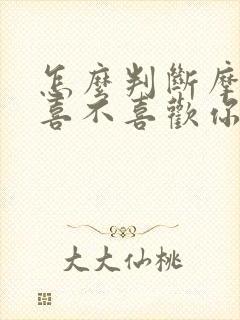 怎麼判斷摩
喜不喜歡你
大大仙桃